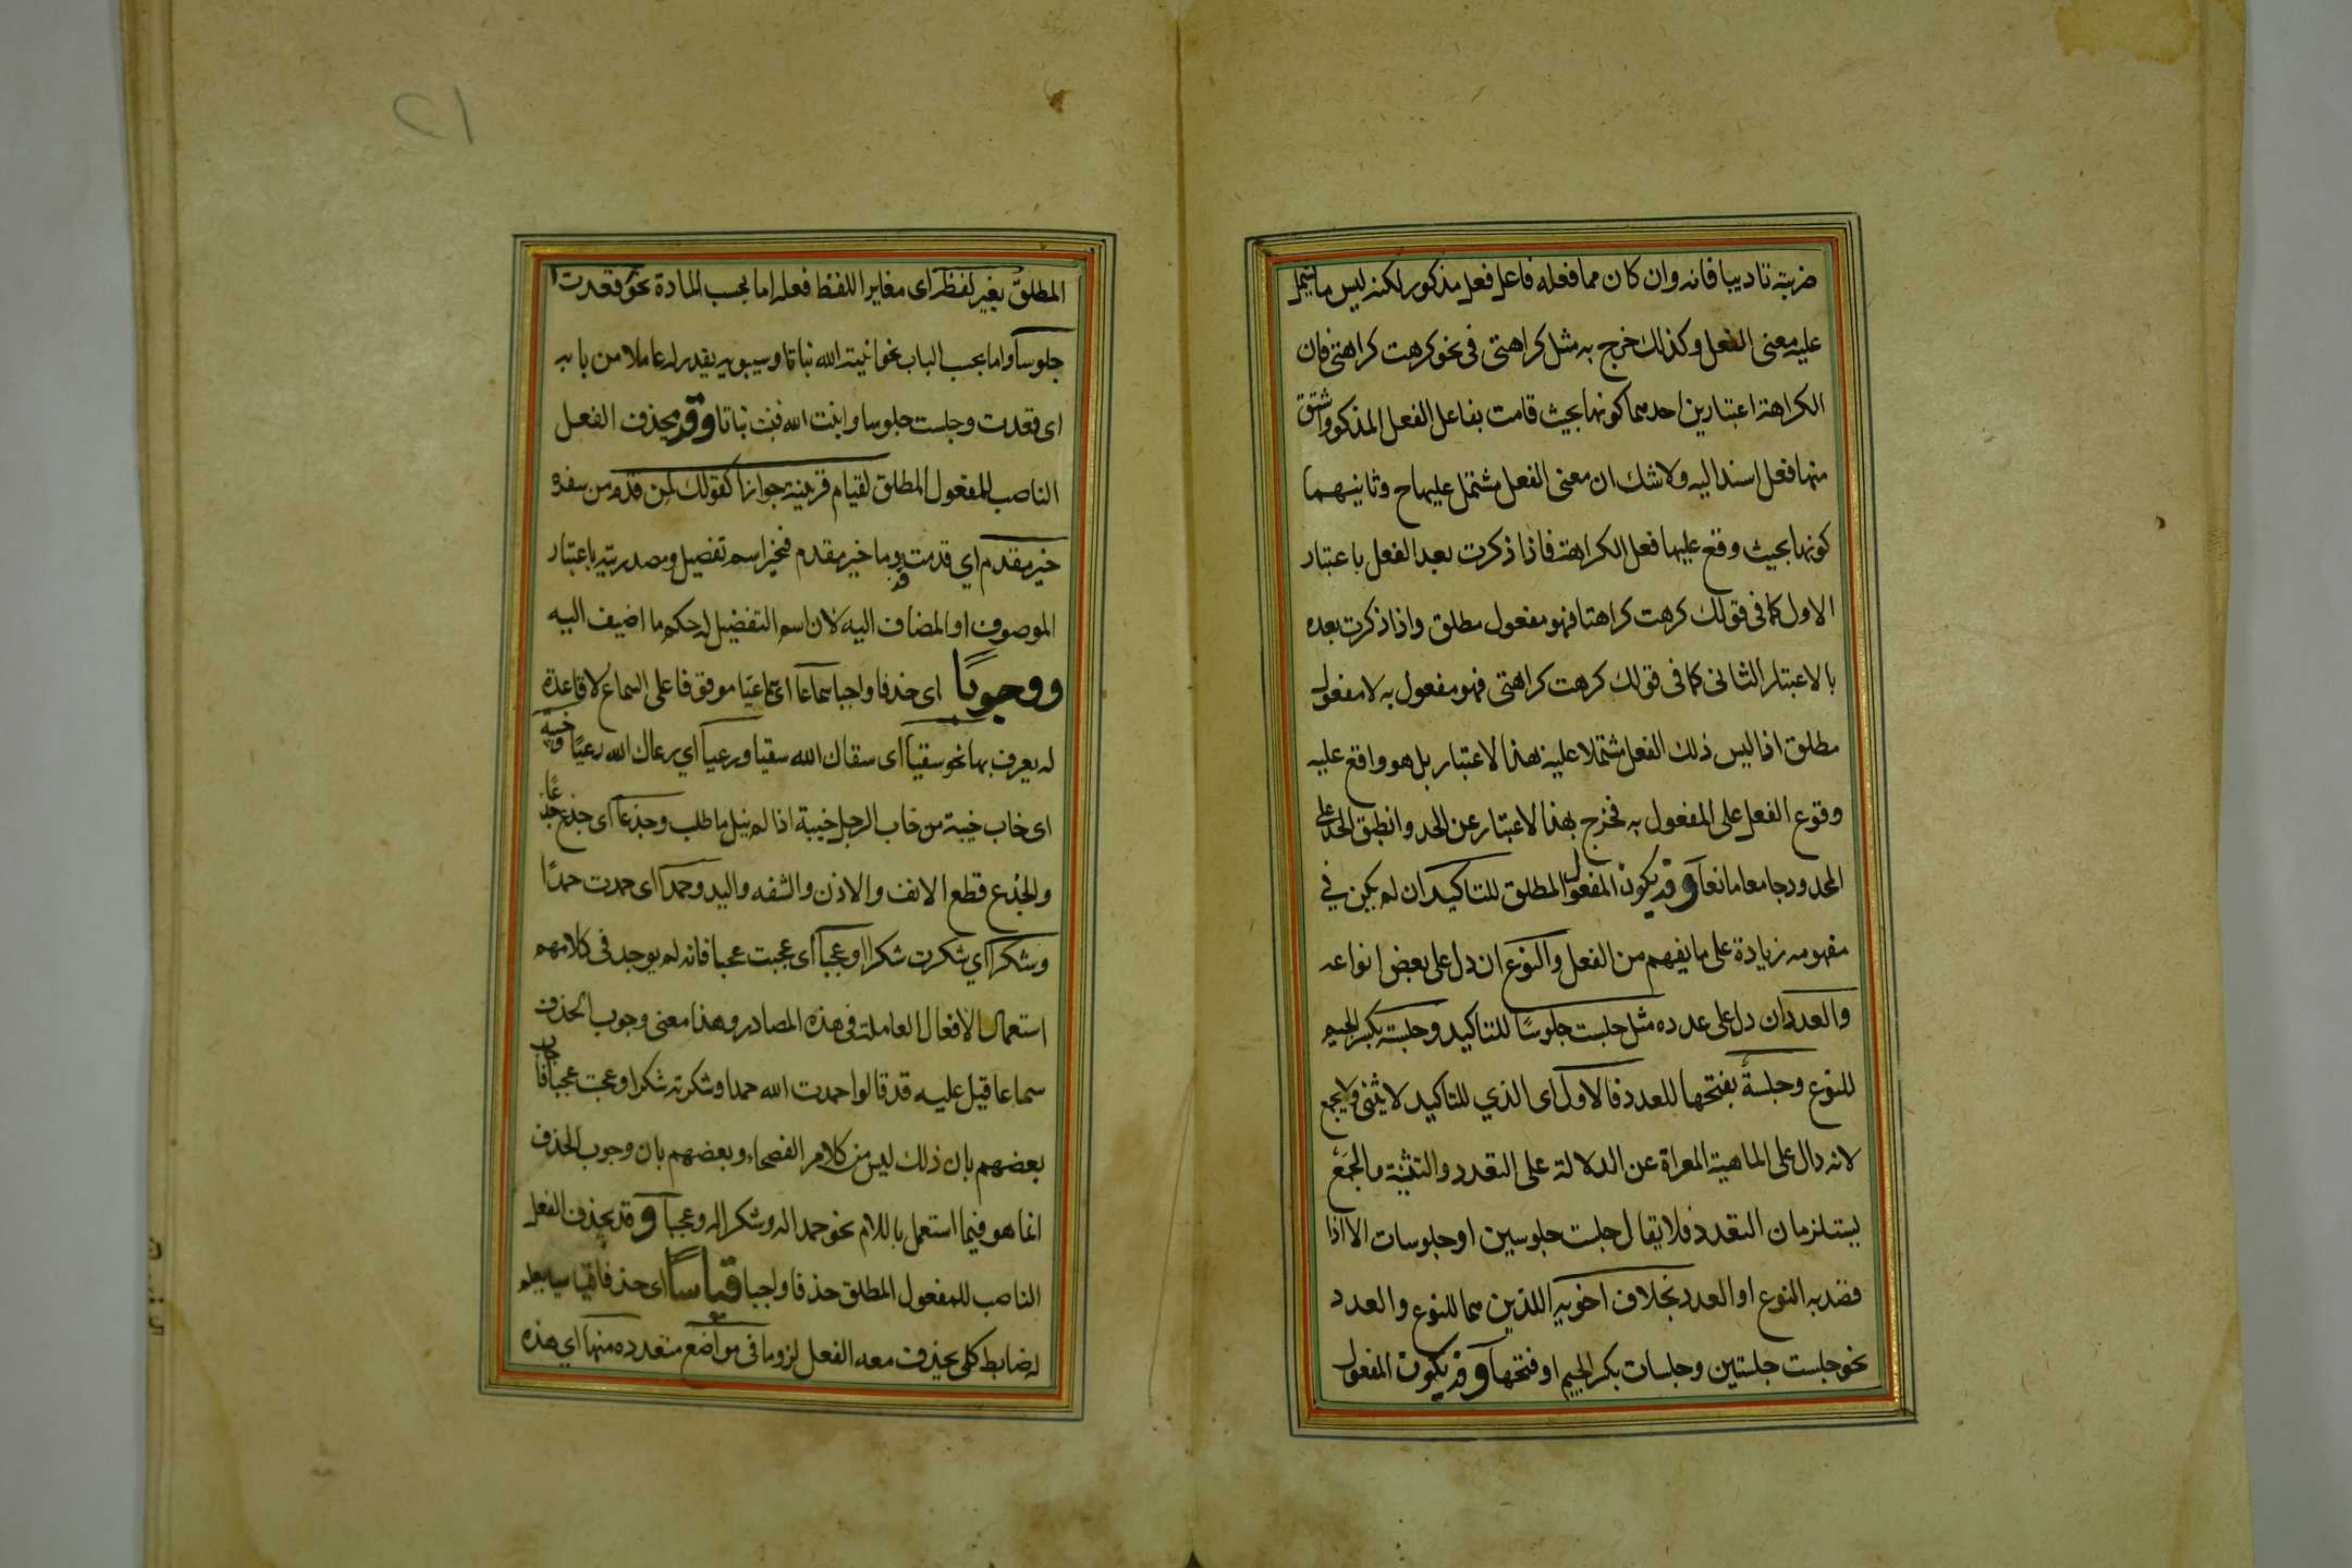 ضربته تاديبا فانه وان كان مما فعله فاعل فعل مذكور لكنه ليس مما يشتمل
عليه معنى الفعل وكذلك خرج به مثل كراهتى فى نحو كرهت كراهتى فان
الكراهة اعتبارين احدهما كونها بحيث قامت بفاعل الفعل المذكور واشتق
منها فعل اسند اليه ولا شك ان معنى الفعل مشتمل عليها ح وثانيهما
كونها بحيث وقع عليها فعل الكراهة فاذا ذكرت بعد الفعل باعتبار
الاول كما فى قولك كرهت كراهتا فهو مفعول مطلق واذا ذكرت بعده
بالاعتبار الثانى كما فى قولك كرهت كراهتى فهو مفعول به لا مفعول
مطلق اذا ليس ذلك الفعل مشتملا عليه هذا الاعتبار بل هو واقع عليه
وقوع الفعل على المفعول به فخرج بهذا الاعتبار عن الحد وانطبق الحد على
المحدود جامعا مانعا وقد يكون المفعول المطلق للتاكيد ان لم يكن في
مفهومه زيادة على ما يفهم من الفعل والنوع ان دل على بعض انواعه
والعدد ان دل على عدده مثل جلست جلوسًا للتاكيد وجلسة بكسر الجيم
للنوع وجلسةً بفتحها للعدد فالاول اى الذي للتاكيد لا يثنى ولا يجمع
لانه دال على الماهية المعراة عن الدلالة على التعدد والتثنية والجمع
يستلزمان التعدد فلا يقال جلست جلوسين او جلوسات الا اذا
قصد به النوع او العدد بخلاف اخويه اللذين هما للنوع والعدد
نحو جلست جلستين وجلسات بكسر الجيم او فتحها وقد يكون المفعول
٢١
المطلق بغير لفظه اى مغايرا للفظ فعله اما بحسب المادة نحو قعدت
جلوسا واما بحسب الباب نحو انبته الله نباتا وسيبويه يقدر له عاملا من بابه
اى قعدت وجلست جلوسا وانبت الله فنبت نباتا وقد يحذف الفعل
الناصب للمفعول المطلق لقيام قرينة جوازا كقولك لمن قدم من سفره
خير مقدم اي قدمت قدوما خير مقدم فخير اسم تفضيل ومصدريته باعتبار
الموصوف او المضاف اليه لان اسم التفضيل له حكم ما اضيف اليه
ووجوبًا اى حذفا واجبا سماعا اى سماعيا موقوفا على السماع لا قاعدة
له يعرف بها نحو سقيا اى سقاك الله سقيا ورعيا اي رعاك الله رعيًا وخيبة
اى خاب خيبة من خاب الرجل خيبة اذا لم ينل ما طلب وجدعا اى جدع جدعًا
والجدع قطع الانف والاذن والشفه واليد وحمدا اى حمدت حمدًا
وشكرا اي شكرت شكرا وعجبا اى عجبت عجبا فانه لم يوجد فى كلامهم
استعمال الافعال العاملة فى هذه المصادر وهذا معنى وجوب الحذف
سماعا قيل عليه قد قالوا حمدت الله حمدا وشكرته شكرا وعجبت عجبا فاجاب
بعضهم بان ذلك ليس من كلام الفصحاء وبعضهم بان وجوب الحذف
انما هو فيما استعمل باللام نحو حمدا له وشكرا له وعجبا و قد يحذف الفعل
الناصب للمفعول المطلق حذفا واجبا قياسًا اى حذفا قياسيا يعلم
له ضابط كلى يحذف معه الفعل لزوما فى مواضع متعدده منها اي هذه